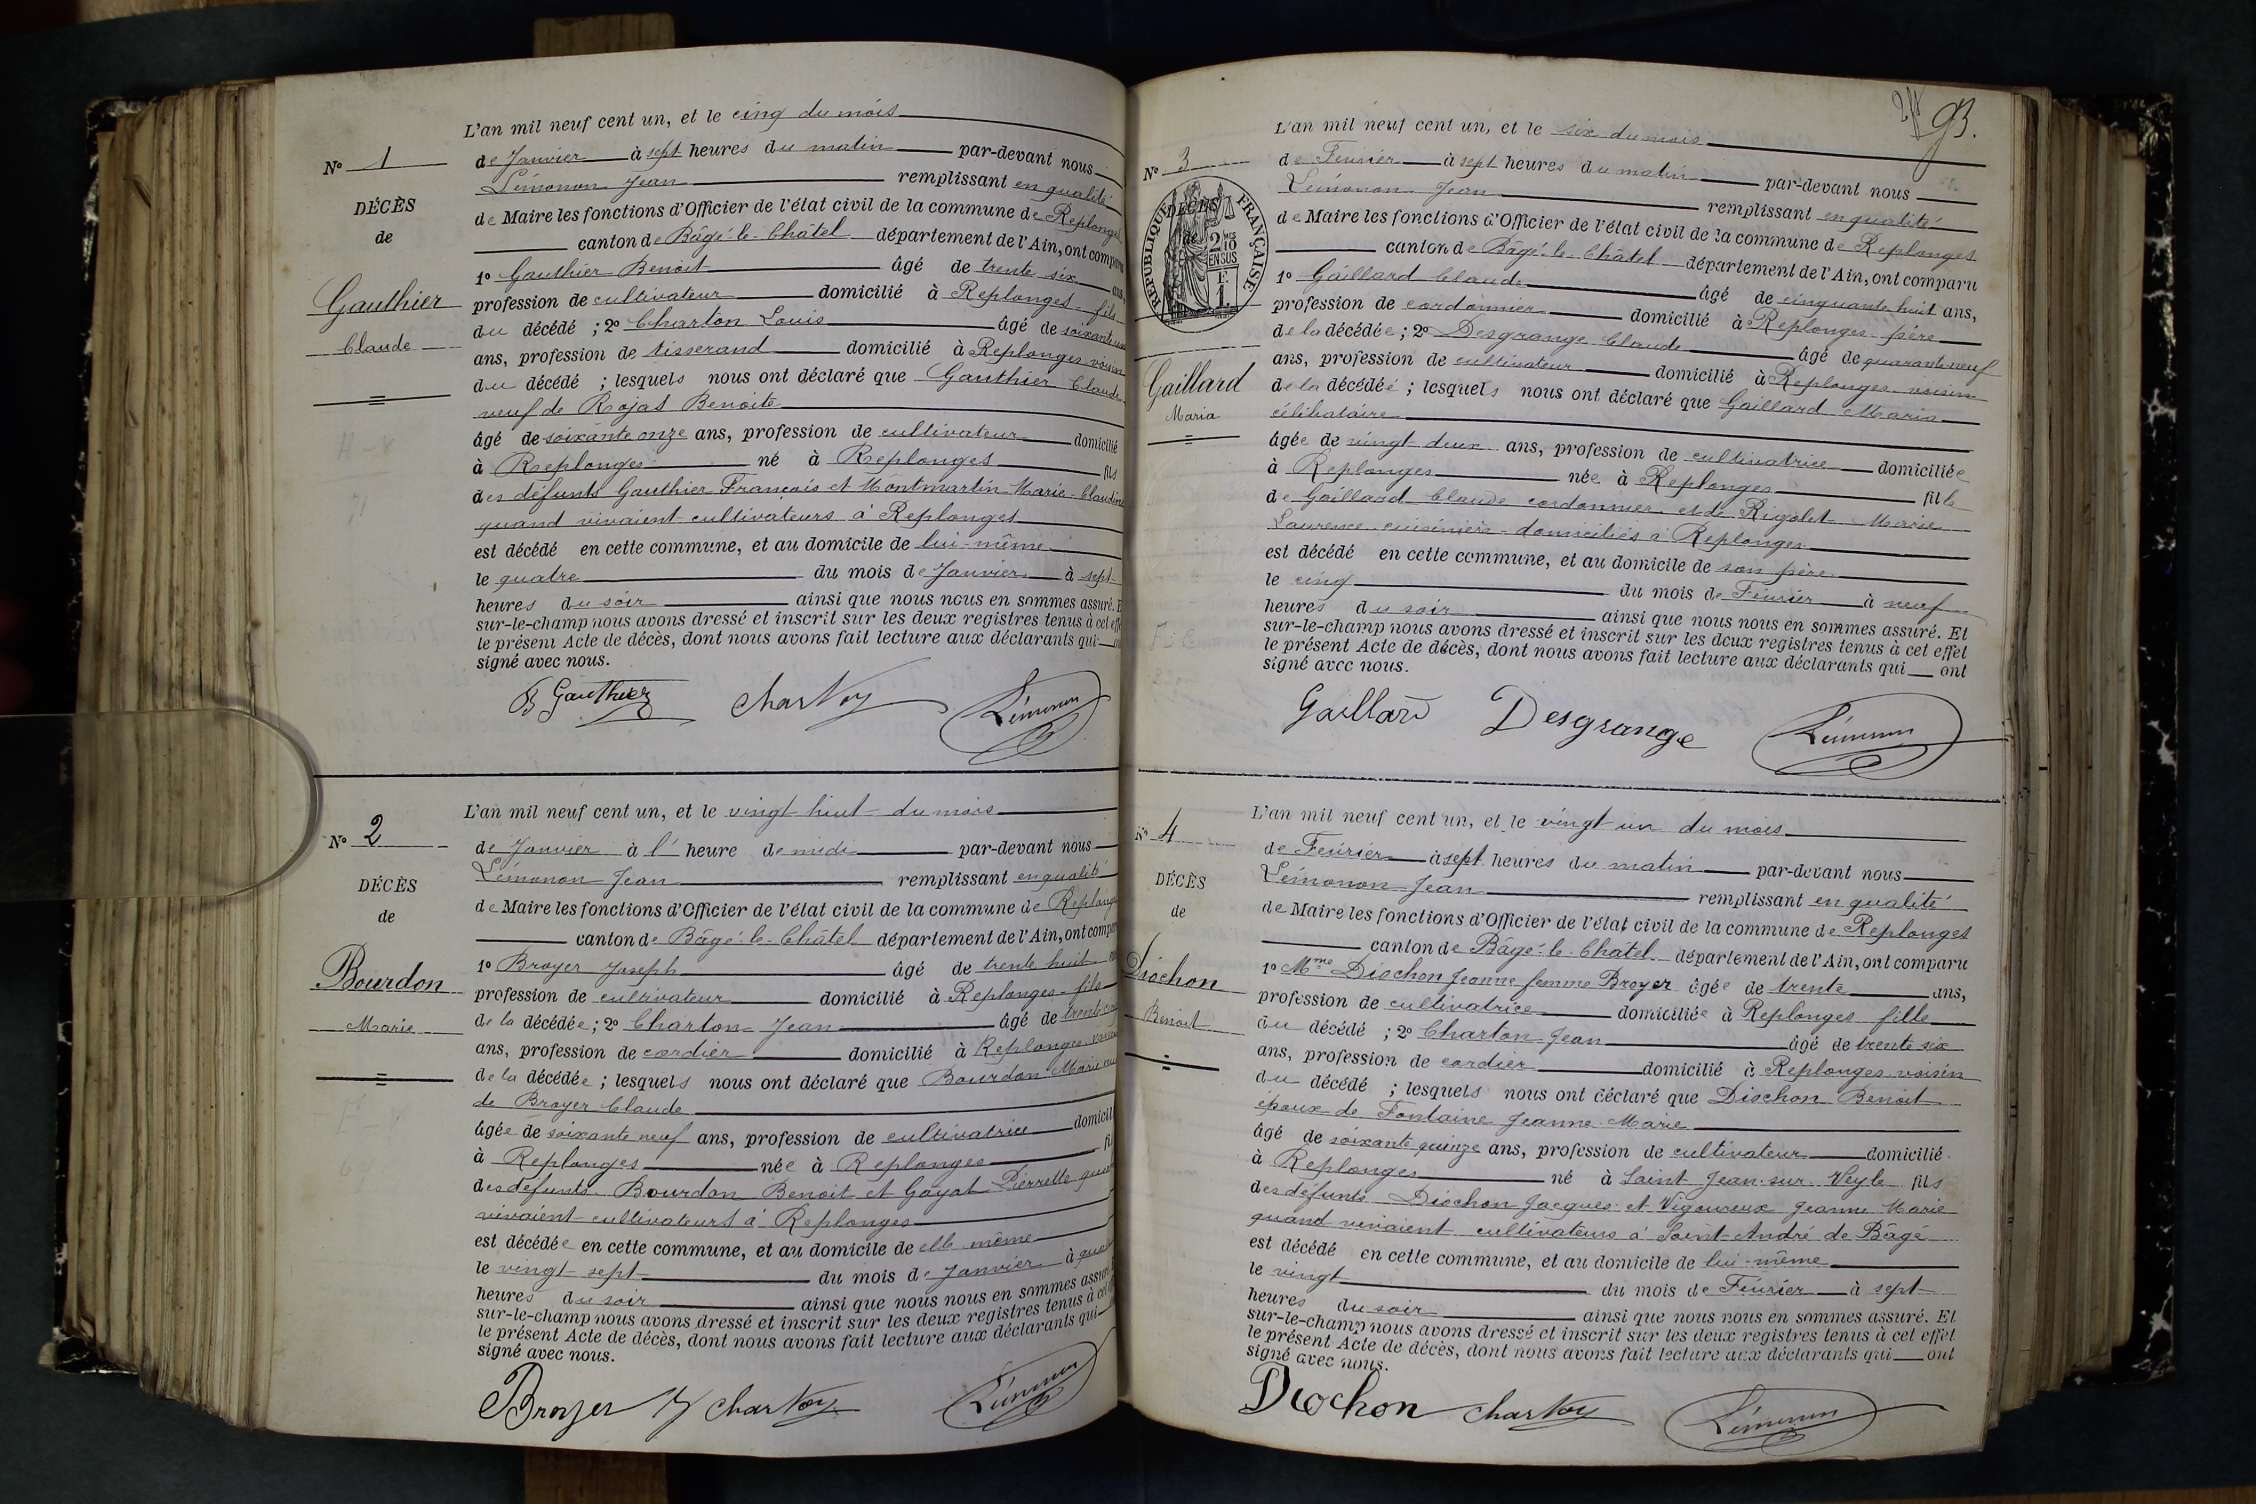 L'an mil neuf cent un, et le cinq du mois
N° 1
de Janvier à sept heures du matin par-devant nous
Lémonon Jean remplissant en qualité
DÉCÈS
de Maire les fonctions d'Officier de l'état civil de la commune de Replonges
de
canton de Bâgé-le-Châtel département de l'Ain, ont comparu
1° Gauthier Benoit âgé de trente six ans,
Gauthier
profession de cultivateur domicilié à Replonges fils
du décédé ; 2° Charton Louis âgé de
Claude
ans, profession de tisserand domicilié à Replonges voisin
du décédé ; lesquels nous ont déclaré que Gauthier Claude
veuf de Rojat Benoite
âgé de soixante onze ans, profession de cultivateur domicilié
à Replonges né à Replonges fils
des défunts Gauthier François et Montmartin Marie-Claudine
quand vivaient cultivateurs à Replonges
est décédé en cette commune, et au domicile de lui-même
le quatre du mois de Janvier à sept
heures du soir ainsi que nous nous en sommes assuré. E
sur-le-champ nous avons dressé et inscrit sur les deux registres tenus à cet eff
le présent Acte de décès, dont nous avons fait lecture aux déclarants qui
signé avec nous.
B Gauthier Charton Lémonon
L'an mil neuf cent un, et le vingt huit du mois
N° 2
de Janvier à l'heure de midi par-devant nous
Lémonon Jean remplissant en qualité
DÉCÈS
de Maire les fonctions d'Officier de l'état civil de la commune de Replonges
de
canton de Bâgé-le-Châtel département de l'Ain, ont compar
1° Broyer Joseph âgé de trente huit
Bourdon
profession de cultivateur domicilié à Replonges fils
Marie
de la décédée ; 2° Charton Jean âgé de
ans, profession de cordier domicilié à Replonges voisin
de la décédée ; lesquels nous ont déclaré que Bourdon Marie
de Broyer Claude
âgée de soixante neuf ans, profession de cultivatrice domicil
à Replonges née à Replonges fi
des défunts Bourdon Benoit et Goyat Pierrette quan
vivaient cultivateurs à Replonges
est décédée en cette commune, et au domicile de elle même
le vingt sept du mois de Janvier à
heures du soir ainsi que nous nous en sommes assur
sur-le-champ nous avons dressé et inscrit sur les deux registres tenus à cet
le présent Acte de décès, dont nous avons fait lecture aux déclarants qui
signé avec nous.
Broyer J Charton Lémonon
93.
L'an mil neuf cent un, et le six du mois
N° 3
de Février à sept heures du matin par-devant nous
Lémonon Jean remplissant en qualité
DÉCÈS
de
RÉPUBLIQUE FRANÇAISE
2/10 EN SUS
F. 1.
de Maire les fonctions d'Officier de l'état civil de la commune de Replonges
canton de Bâgé-le-Châtel département de l'Ain, ont comparu
1° Gaillard Claude âgé de cinquante huit ans,
profession de cordonnier domicilié à Replonges père
de la décédée ; 2° Desgrange Claude âgé de quarante neuf
Gaillard
ans, profession de cultivateur domicilié à Replonges voisin
Maria
de la décédée ; lesquels nous ont déclaré que Gaillard Maria
célibataire
âgée de vingt deux ans, profession de cultivatrice domiciliée
à Replonges née à Replonges fille
de Gaillard Claude cordonnier et de Rigolet Marie
Laurence cuisinière domiciliés à Replonges
est décédé en cette commune, et au domicile de son père
le cinq du mois de Février à neuf
heures du soir ainsi que nous nous en sommes assuré. Et
sur-le-champ nous avons dressé et inscrit sur les deux registres tenus à cet effet
le présent Acte de décès, dont nous avons fait lecture aux déclarants qui ont
signé avec nous.
Gaillard Desgrange Lémonon
L'an mil neuf cent un, et le vingt un du mois
N° 4
de Février à sept heures du matin par-devant nous
Lémonon Jean remplissant en qualité
DÉCÈS
de Maire les fonctions d'Officier de l'état civil de la commune de Replonges
de
canton de Bâgé-le-Châtel département de l'Ain, ont comparu
Diochon
1° Mme Diochon Jeanne femme Broyer âgée de trente ans,
profession de cultivatrice domiciliée à Replonges fille
Benoit
du décédé ; 2° Charton Jean âgé de trente six
ans, profession de cordier domicilié à Replonges voisin
du décédé ; lesquels nous ont déclaré que Diochon Benoit
époux de Fontaine Jeanne Marie
âgé de soixante quinze ans, profession de cultivateur domicilié
à Replonges né à Saint Jean-sur-Veyle fils
des défunts Diochon Jacques et Vigoureux Jeanne Marie
quand vivaient cultivateurs à Saint-André de Bâgé
est décédé en cette commune, et au domicile de lui-même
le vingt du mois de Février à sept
heures du soir ainsi que nous nous en sommes assuré. Et
sur-le-champ nous avons dressé et inscrit sur les deux registres tenus à cet effet
le présent Acte de décès, dont nous avons fait lecture aux déclarants qui ont
signé avec nous.
Diochon Charton Lémonon